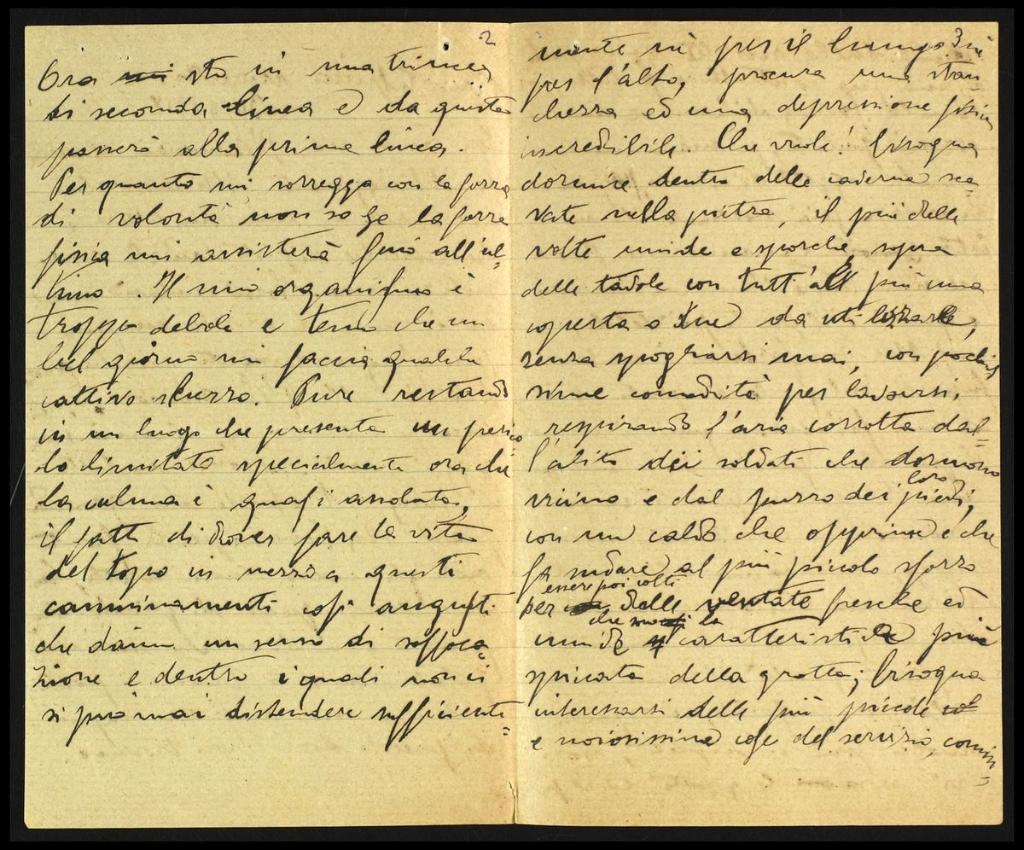 2
Ora mi sto in una trincea
di seconda linea e da questa
passerò alla prima linea.
Per quanto mi sorregga con la forza
di volontà non so se la forza
fisica mi assisterà fino all'ul-
timo. Il mio organismo è
troppo debole e temo che un
bel giorno mi faccia qualche
cattivo scherzo. Pure restando
in un luogo che presenta un perico
lo limitato specialmente ora che
la calma è quasi assoluta,
il fatto di dover fare la vita
del topo in mezzo a questi
camminamenti così angusti
che danno un senso di soffoca-
zione e dentro i quali non ci
si può mai distendere sufficiente-
3
mente nè per il lungo nè
per l'alto, procura una stan-
chezza ed una depressione fisica
incredibile. Che vuole! bisogna
dormire dentro delle caverne sca-
vate nella pietra, il più delle
volte umide e sporche, sopra
delle tavole con tutt'al più una
coperta o due da utilizzare,
senza spogliarsi mai, con pochis
sime comodità per lavarsi,
respirando l'aria corrotta dal-
l'alito dei soldati che dormono
vicino e dal puzzo dei loro piedi,
con un caldo che opprime e che
fa sudare al più piccolo sforzo
per essere poi colti delle ventate fresche ed
umide che sono la caratteristica più
spiccata della grotta; bisogna
interessarsi delle più piccole
e noiosissime cose del servizio, comin-